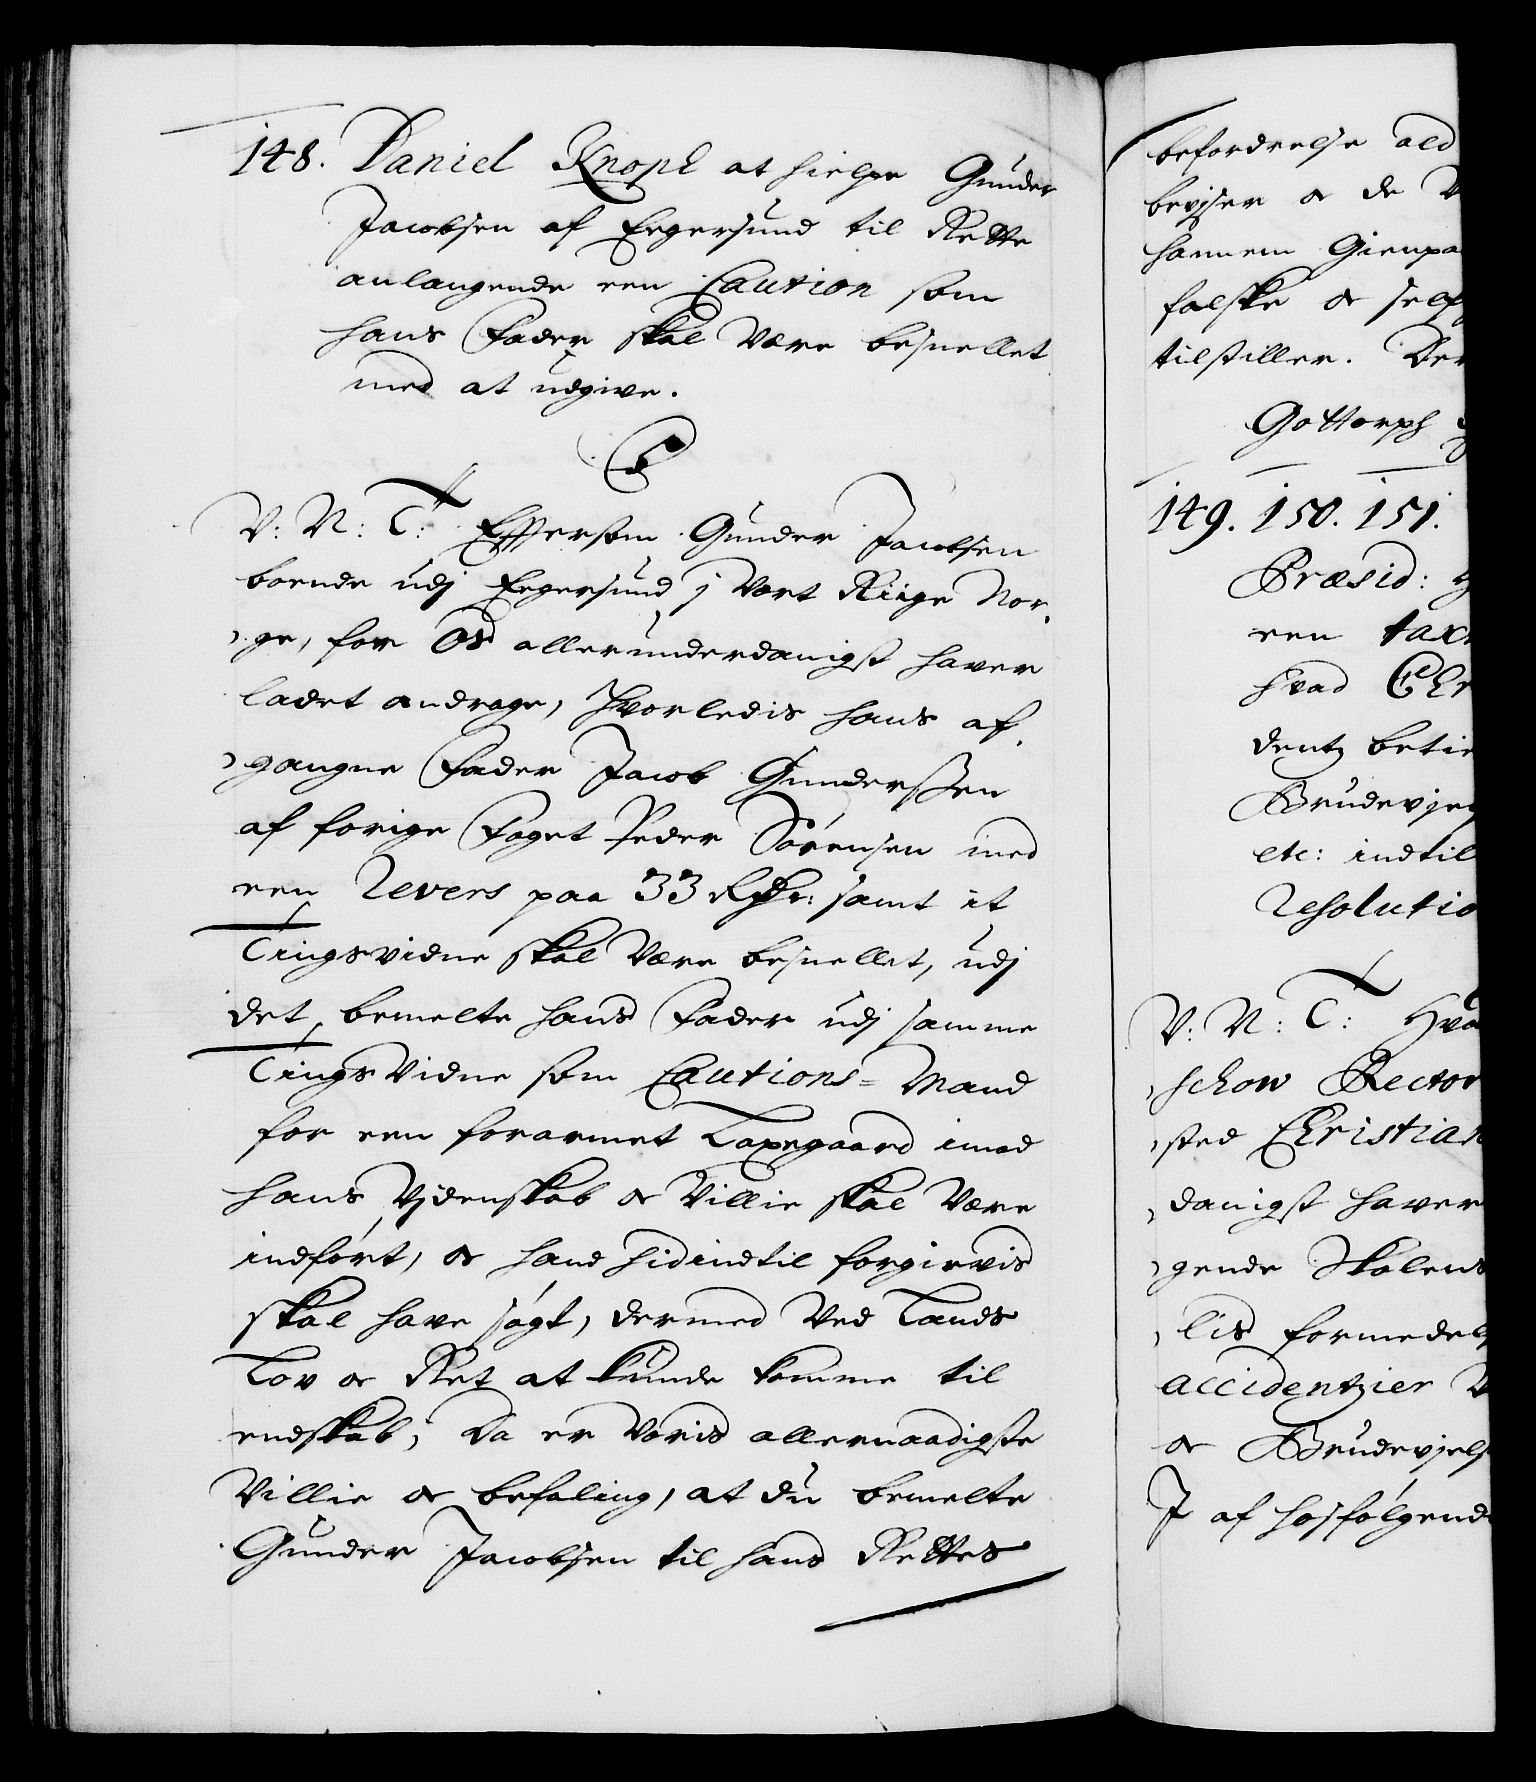 148. Daniel Knoph at hielpe Gunder
Jacobsen af Eegersund til Rette
anlangende een Caution som
hans Fader skal være besnellet
med at udgive.
V: N: T: Eftersom Gunder Jacobsen
boende udj Eegersund j vort Riige Nor-
ge, for Os allerunderdanigst haver
ladet andrage, hvorledis hans af-
gangne Fader Jacob Gunderssen
af forige Foget Peder Sörensen med
een Revers paa 33 Rdr: samt it
Tingsvidne skal være besnellet, udj
det bemelte hans Fader udj samme
Tings Vidne som Cautions-Mand
for een forarmet Laxegaard imod
hans Vjdenskab oc Villie skal være
indfört, oc hand hidindtil forgievis
skal have sögt, dermed ved Lands
Lov oc Ret at kunde komme til
endskab; Da er Voris allernaadigste
Villie oc befaling, at du bemelte
Gunder Jacobsen til hans Rettes
befordrelse ald
beviser oc de
hannem Gienpa
falske oc self
tilstiller. Der
Gottorph
149. 150. 151.
Præsid:
een tax
hvad Chr
dentz betie
Brudevjel
etc: indtil
Resolutio
V: N: T: Hva
schow Rector
sted Christian
danigst haver
gende Skolens
lis formedel
accidentzier
oc Brudevjels
J af hosfölgend